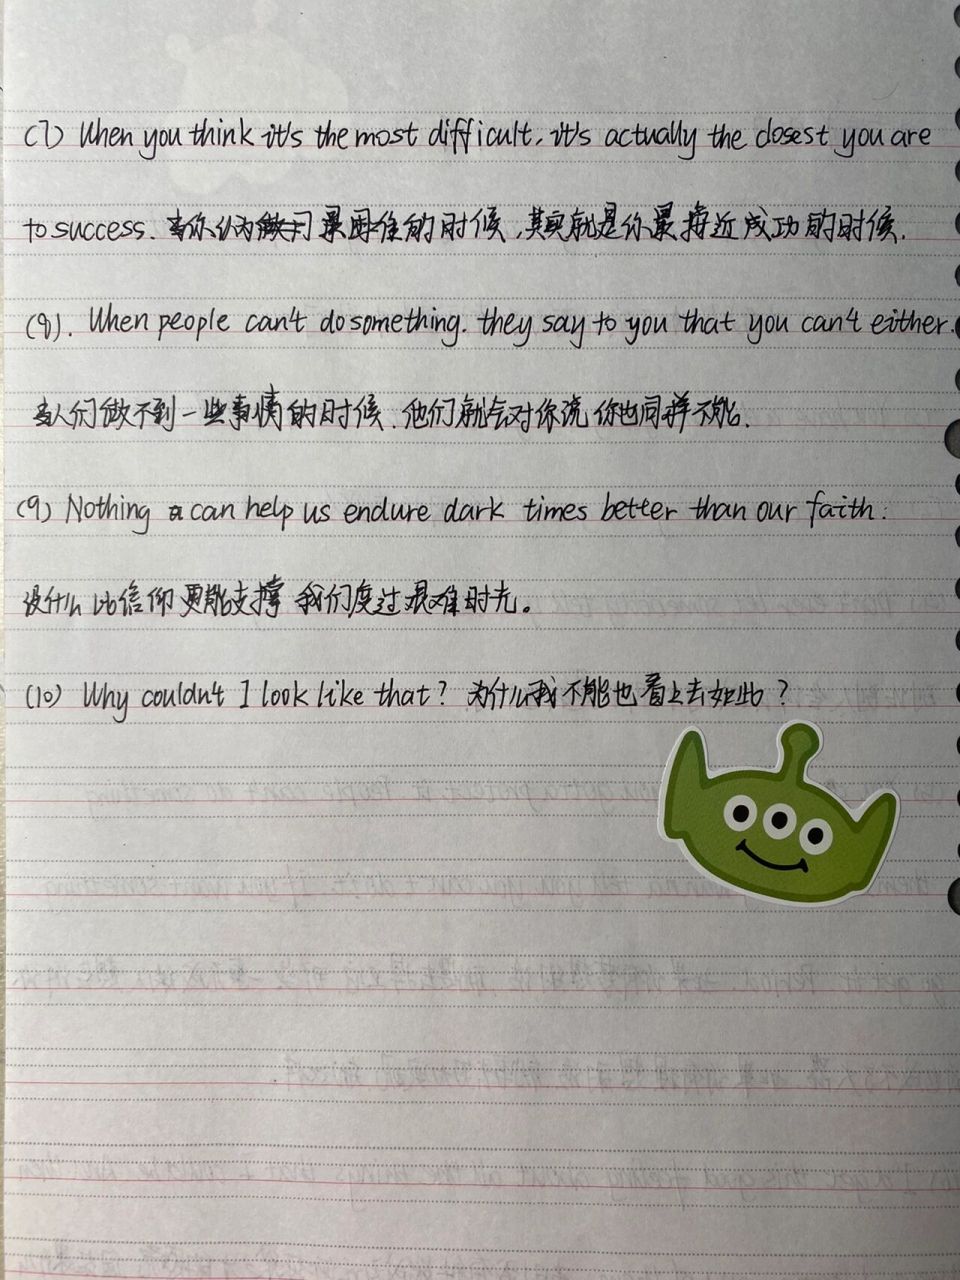 (7) When you think it's the most difficult, it's actually the closest you are
to success. 当你认为最困难的时候,其实就是你最接近成功的时候.
(8). When people can't do something. they say to you that you can't either.
当人们做不到一些事情的时候、他们就会对你说你也同样不能.
(9) Nothing can help us endure dark times better than our faith.
没什么比信仰更能支撑我们度过艰难时光。
(10) Why couldn't I look like that? 为什么我不能也看上去如此?